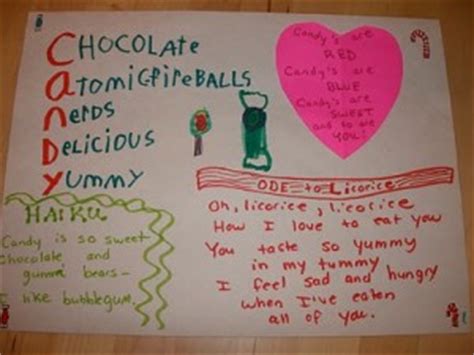 CHOCOLATE
AtomicfireBALLS
NERDS
DELICIOUS
YUMMY
Candy's are
RED
Candy's are
BLUE
Candy's are
SWEET
and so are
YOU!
HAIKU
Candy is so sweet
Chocolate and
gummi bears-
I like bubblegum.
ODE to Licorice
Oh, licorice, licorice
How I love to eat you
You taste so yummy
in my tummy
I feel sad and hungry
when I've eaten
all of you.